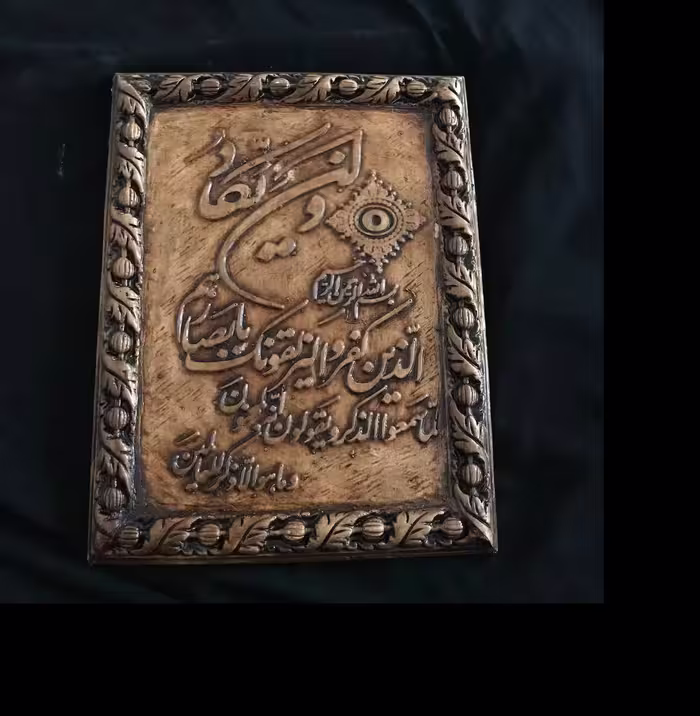 وإن يكاد
بسم الله الرحمن الرحيم
الذين كفروا ليزلقونك بأبصارهم
لما سمعوا الذكر ويقولون إنه لمجنون
وما هو إلا ذكر للعالمين